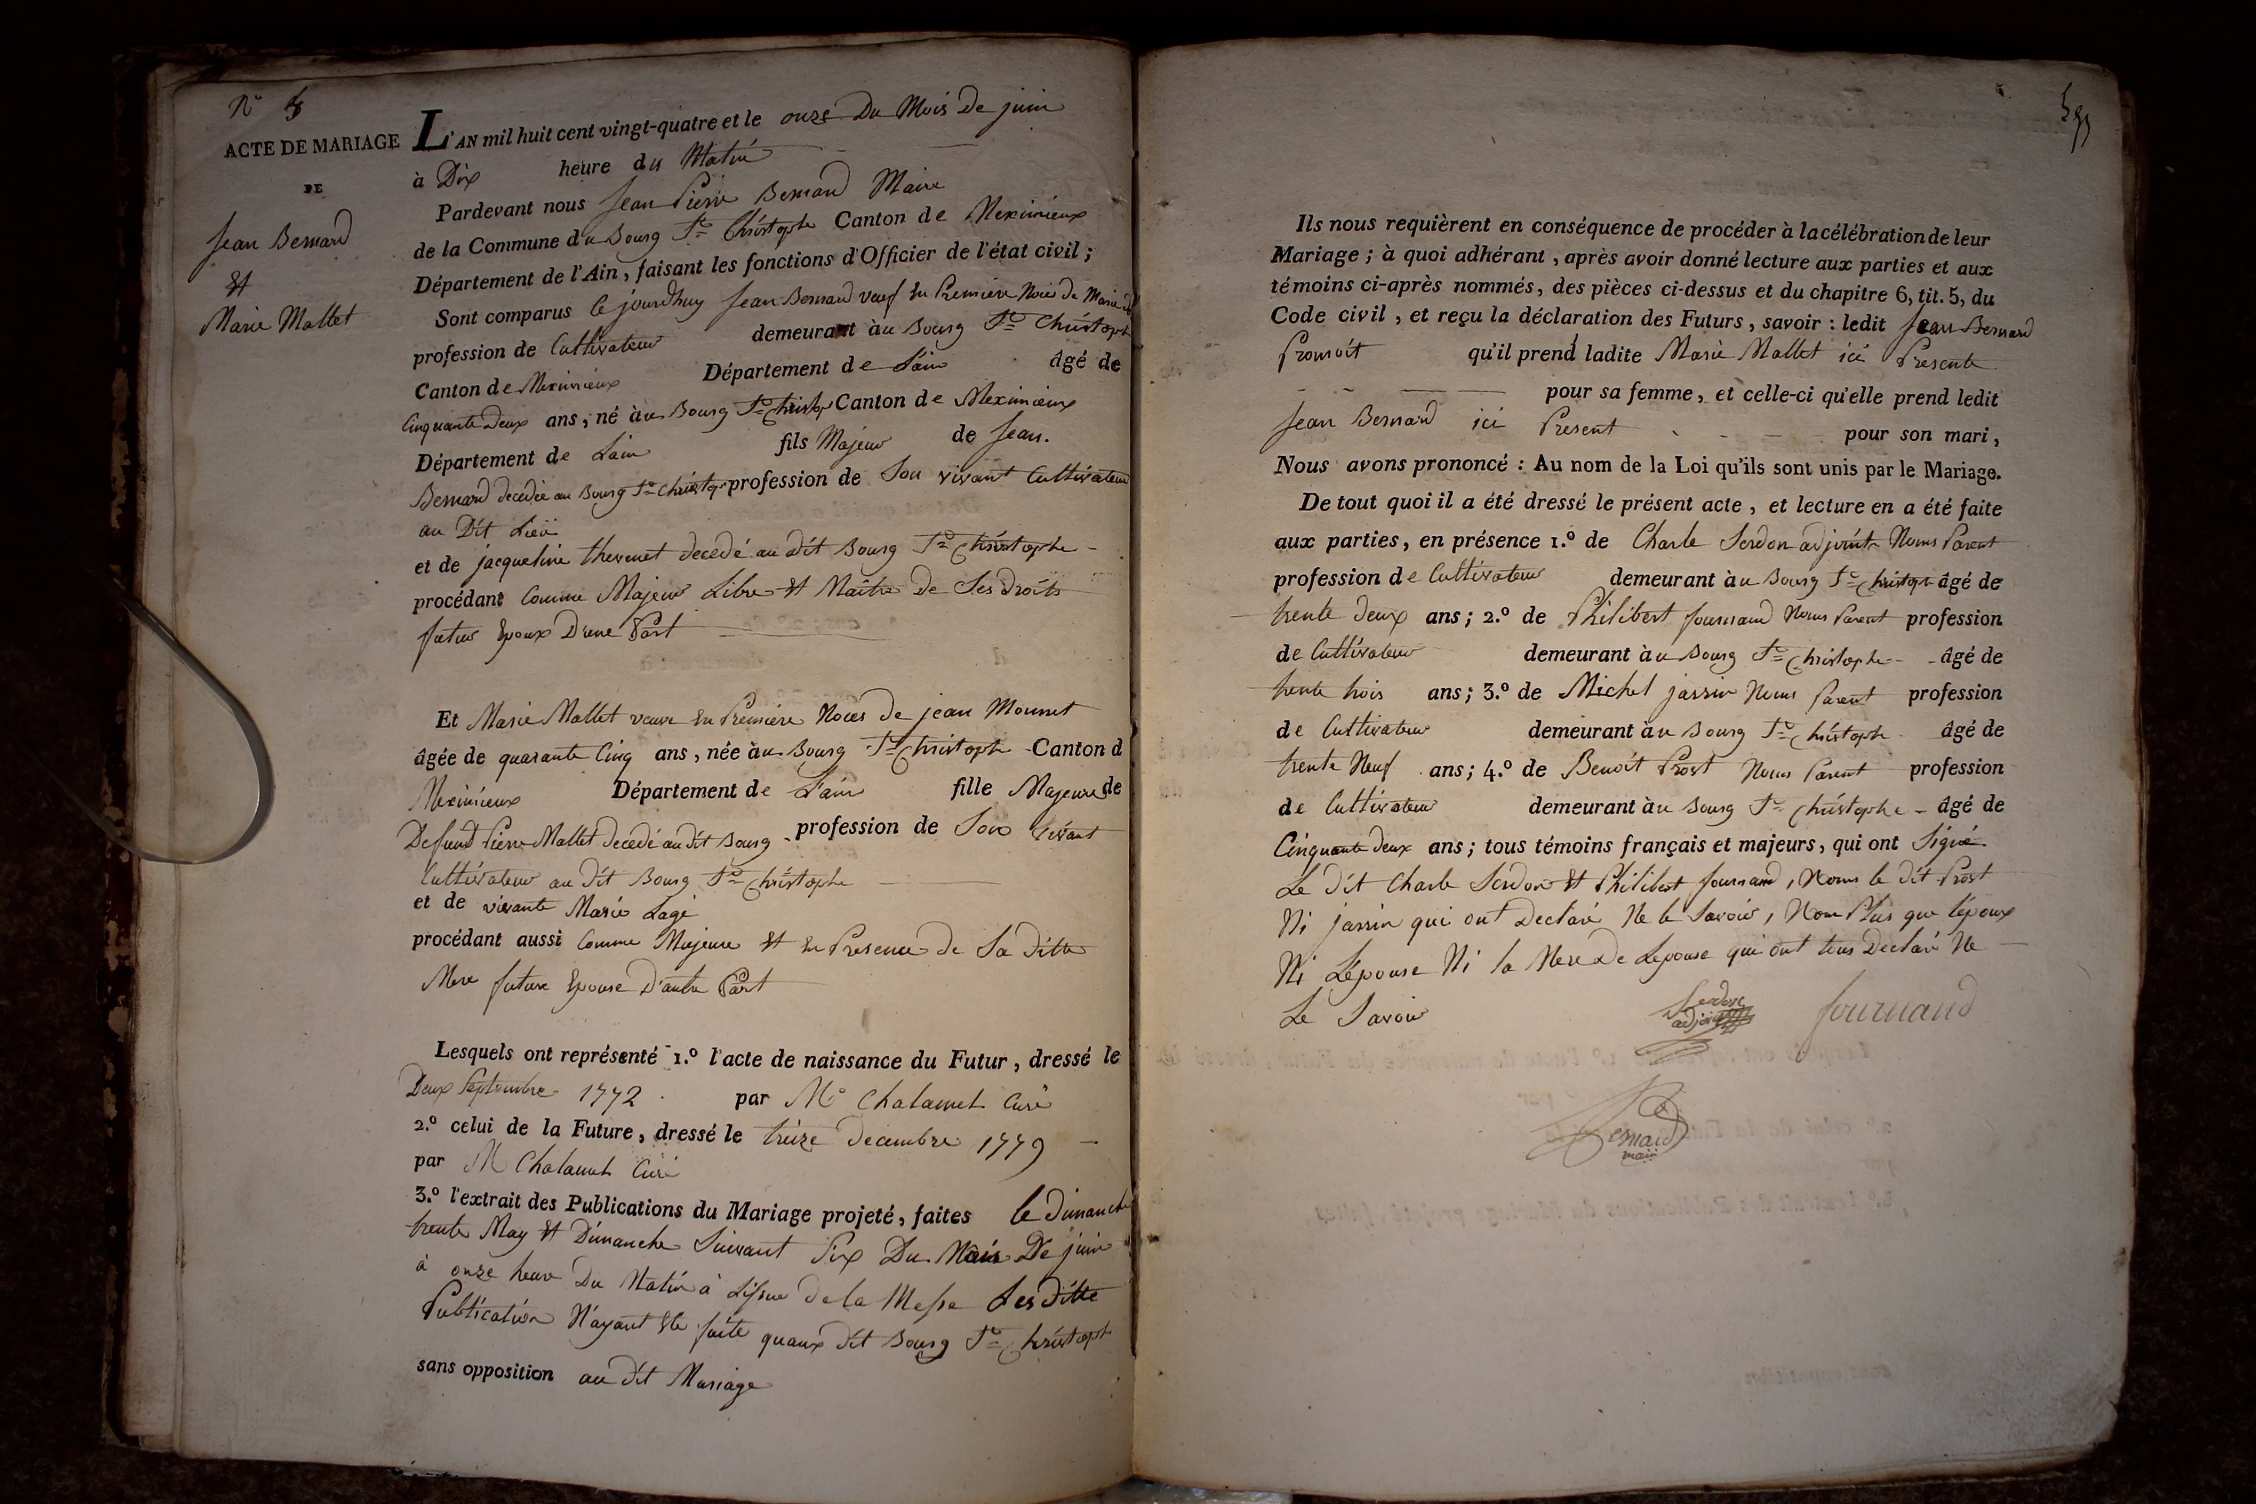 N° 8
ACTE DE MARIAGE
DE
Jean Bernard
Et
Marie Mallet
L'AN mil huit cent vingt-quatre et le onze Du Mois De juin
à Dix heure du Matin
Pardevant nous Jean Pierre Bernard Maire
de la Commune du Bourg St Christophe Canton de Meximieux
Département de l'Ain, faisant les fonctions d'Officier de l'état civil;
Sont comparus Ce jourdhuy Jean Bernard veuf En Premiere Noces De Marie
profession de Cultivateur demeurant àu Bourg St Christoph
Canton de Meximieux Département de L'ain âgé de
Cinquante Deux ans, né àu Bourg St Christop Canton de Meximieux
Département de Lain fils Majeur de Jean.
Bernard decedée au Bourg St Christop profession de Son vivant Cultivateur
au Dit Lieu
et de jacqueline thevenet decedé au dit Bourg St Christophe -
procédant Comme Majeur Libre Et Maitre De Ses droits
futur Epoux D'une Part
Et Marie Mallet veuve En Premiere Noces De jean Mounet
âgée de quarante Cinq ans, née àu Bourg St Christoph Canton d
Meximieux Département de L'ain fille Majeure de
Defund Pierre Mallet decedé au dit Bourg - profession de Son vivant
Cultivateur au dit Bourg St Christophe
et de vivante Marie Lagé
procédant aussi Comme Majeure Et En Presence De Sa ditte
Mere future Epouse D'autre Part
Lesquels ont représenté 1.º l'acte de naissance du Futur, dressé le
Deux Septembre 1772. par Mr Chalamel Curé
2.º celui de la Future, dressé le treize decembre 1779 -
par M Chalamel Curé
3.º l'extrait des Publications du Mariage projeté, faites le dimanche
trente May Et Dimanche Suivant Six Du Mois De juin
à onze heure Du Matin à Lissue De la Messe Les ditte
Publication N'ayant Eté faite quaux dit Bourg St Christoph
sans opposition au dit Mariage
Ils nous requièrent en conséquence de procéder à la célébration de leur
Mariage; à quoi adhérant, après avoir donné lecture aux parties et aux
témoins ci-après nommés, des pièces ci-dessus et du chapitre 6, tit. 5, du
Code civil, et reçu la déclaration des Futurs, savoir: ledit Jean Bernard
Promoit qu'il prend ladite Marie Mallet ici Presente
pour sa femme, et celle-ci qu'elle prend ledit
Jean Bernard ici Present pour son mari,
Nous avons prononcé: Au nom de la Loi qu'ils sont unis par le Mariage.
De tout quoi il a été dressé le présent acte, et lecture en a été faite
aux parties, en présence 1.º de Charle Serdon adjoint Noms Parent
profession de Cultivateur demeurant àu Bourg St Christoph âgé de
trente deux ans; 2.º de Philibert fournand Noms Parent profession
de Cultivateur demeurant àu Bourg St Christophe - âgé de
trente trois ans; 3.º de Michel jassin Noms Parent profession
de Cultivateur demeurant àu Bourg St Christoph âgé de
trente Neuf ans; 4.º de Benoit Prost Noms Parent profession
de Cultivateur demeurant àu Bourg St Christophe - âgé de
Cinquante deux ans; tous témoins français et majeurs, qui ont Signé.
Le dit Charle Serdon Et Philibert fournand, Noms le dit Prost
Ni jassin qui ont Declaré Ne le Savoir, Nom Plus que l'époux
Ni L'épouse Ni la Mere De Lepouse qui ont tous Declaré Ne
Le Savoir
Serdon
adjoint
fournand
Bernard
maire